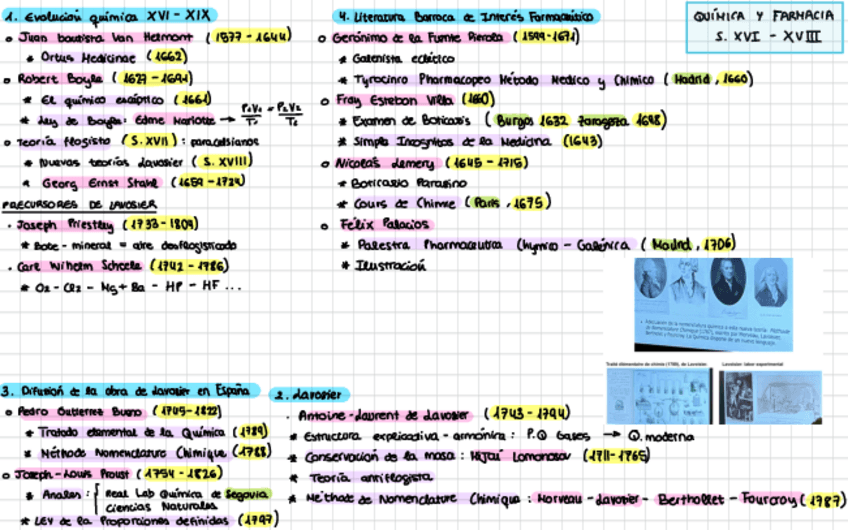 QUÍMICA Y FARMACIA
S. XVI - XVIII
1. Evolución química XVI - XIX
Juan bautista Van Helmont (1577 - 1644)
* Ortus Medicinae (1662)
Robert Boyle (1627 - 1691)
* El químico escéptico (1661)
* Ley de Boyle: Edme Mariotte → P1V1/T1 = P2V2/T2
Teoría flogisto (S. XVII) : paracelsianos
* Nuevas teorías Lavoisier (S. XVIII)
* Georg Ernst Stahl (1659 - 1724)
PRECURSORES DE LAVOISIER
· Joseph Priestley (1733 - 1804)
mineral = aire desflogisticado
· Carl Wilhem Scheele (1742 - 1786)
* O2 - Cl2 - Mg + Ba - HP - HF ...
4. Literatura Barroca de Interés Farmacéutico
Gerónimo de la Fuente Pierola (1599 - 1671)
* Galenista ecléctico
* Tyrocinio Pharmacopeo Método Medico y Chimico (Madrid, 1660)
Fray Esteban Villa
* Examen de Boticarios (Burgos 1632 Zaragoza 1698)
* Simples Incognitos de la Medicina (1643)
Nicolas Lemery (1645 - 1715)
* Boticario Parisino
* Cours de Chimie (París, 1675)
Félix Palacios
* Palestra Pharmaceutica Chymico - Galénica (Madrid, 1706)
* Ilustración
Traité élémentaire de chimie (1789), de Lavoisier.
Lavoisier: labor experimental
3. Difusión de la obra de Lavoisier en España
Pedro Gutierrez Bueno (1745 - 1822)
* Tratado elemental de la Química (1789)
* Méthode Nomenclature Chimique (1788)
Joseph - Louis Proust (1754 - 1826)
* Anales : { Real Lab Química de Segovia
Ciencias Naturales
* LEY de la Proporciones definidas (1797)
2. Lavoisier
· Antoine - Laurent de Lavoisier (1743 - 1794)
* Estructura explicativa - armónica : P.Q Gases → Q. moderna
* Conservación de la masa : Mijail Lomonosov (1711 - 1765)
* Teoría antiflogista
* Méthode de Nomenclature Chimique : Morveau - Lavoisier - Berthollet - Fourcroy (1787)